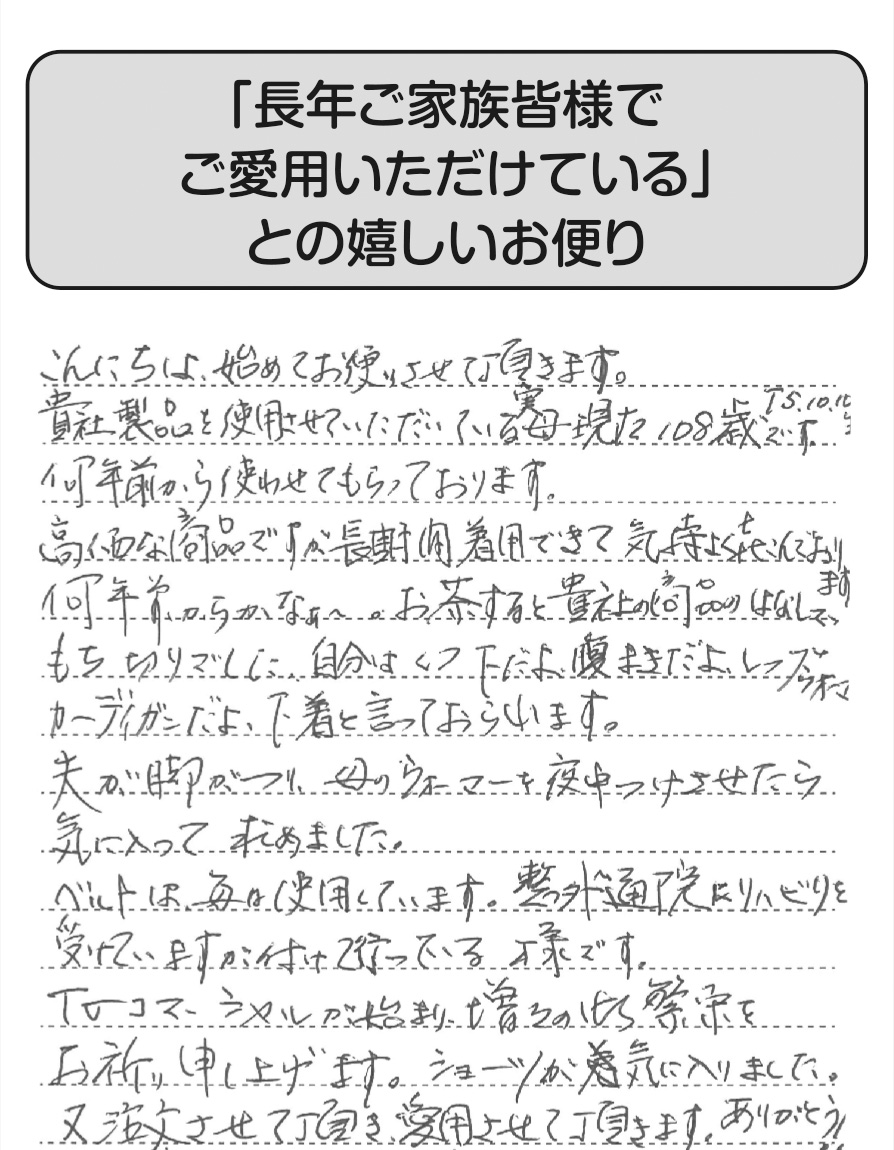 「長年ご家族皆様で
ご愛用いただけている」
との嬉しいお便り
こんにちは、始めてお便りさせて頂きます。
貴社製品を使用させていただいている実母現在108歳です。T5.10.10生
何年前から使わせてもらっております。
高価な商品ですが長期間着用できて気持よく喜んでおります
何年前からかなぁ〜。お茶すると貴社の商品のはなしで、
もち切りでした、自分はくつ下だよ、腹まきだよ、レッグウォーマ
カーディガンだよ、下着と言っておられいます。
夫が脚がつり、母のウォーマーを夜中つけさせたら
気に入って求めました。
ベルトは、毎日使用しています。整外通院にリハビリを
受けていますが付けて行っている様です。
TVコマーシャルが始まり、増々の繁栄を
お祈り申し上げます。ショーツが着気に入りました。
又注文させて頂き、愛用させて頂きます。ありがとう